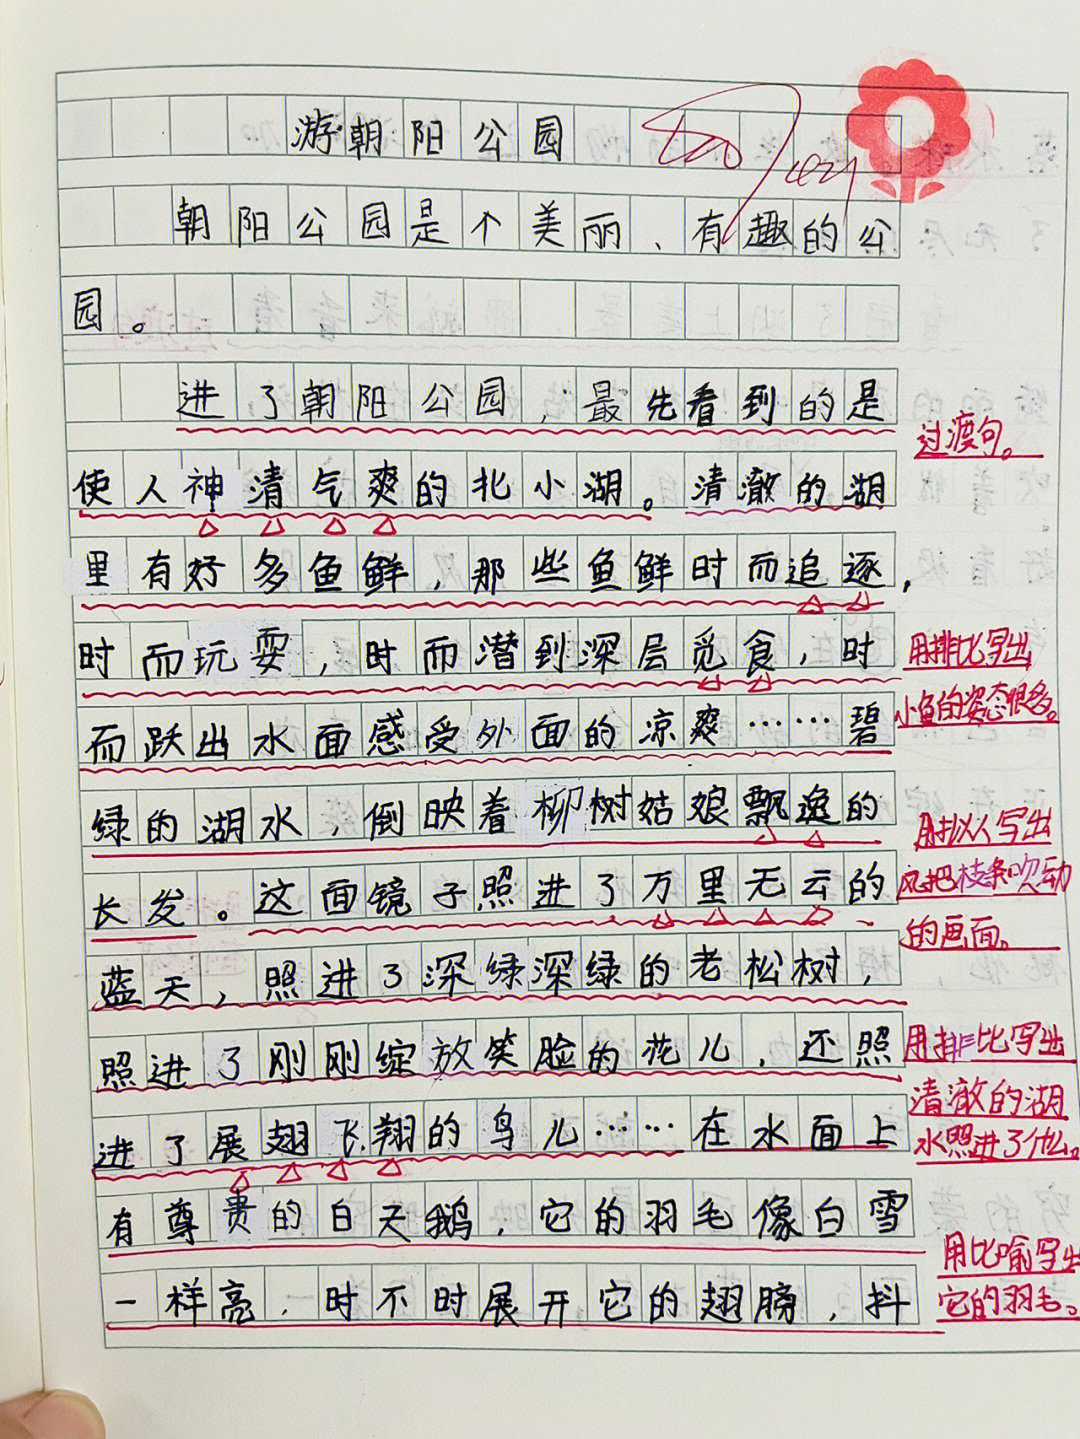 游朝阳公园
朝阳公园是个美丽、有趣的公
园。
进了朝阳公园，最先看到的是
过渡句。
使人神清气爽的北小湖。清澈的湖
里有好多鱼鲜，那些鱼鲜时而追逐，
时而玩耍，时而潜到深层觅食，时
用排比写出
小鱼的姿态很多。
而跃出水面感受外面的凉爽……碧
绿的湖水，倒映着柳树姑娘飘逸的
用拟人写出
长发。这面镜子照进了万里无云的
风把枝条吹动
的画面。
蓝天，照进了深绿深绿的老松树，
照进了刚刚绽放笑脸的花儿，还照
用排比写出
清澈的湖
进了展翅飞翔的鸟儿……在水面上
水照进了什么。
有尊贵的白天鹅，它的羽毛像白雪
用比喻写出
一样亮，时不时展开它的翅膀，抖
它的羽毛。